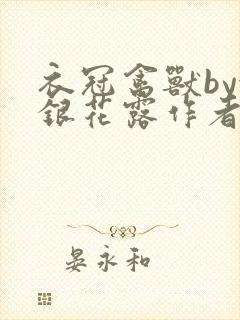 衣冠禽獸by
銀花露作者
晏永和